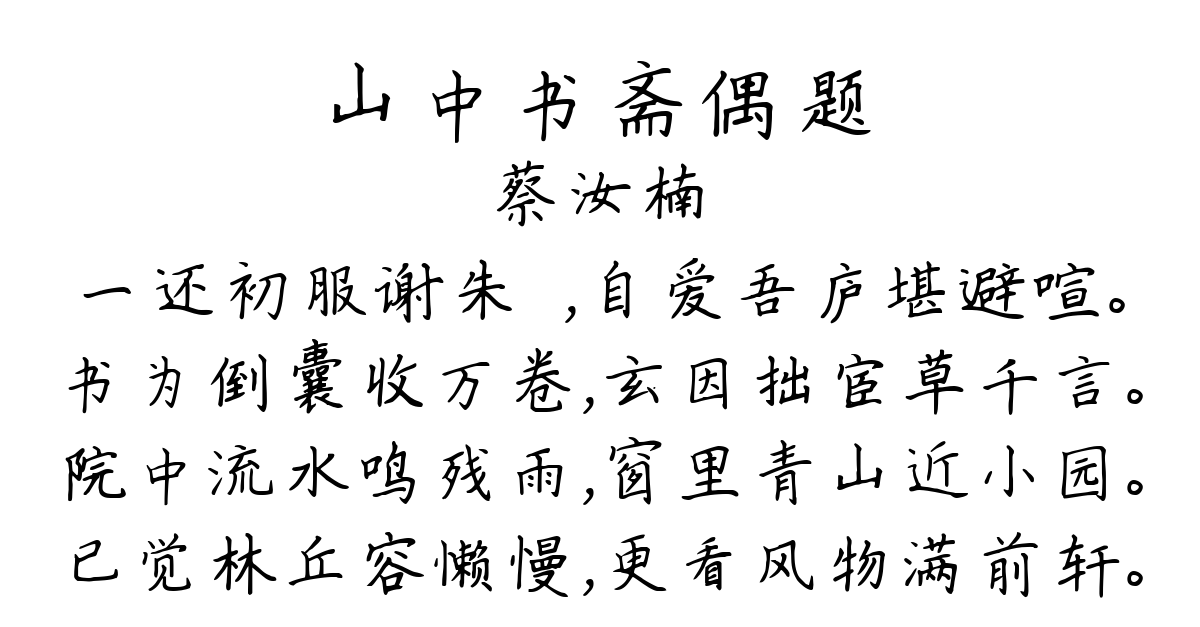 山中书斋偶题
蔡汝楠
一还初服谢朱 ,自爱吾庐堪避喧。
书为倒囊收万卷,玄因拙宦草千言。
院中流水鸣残雨,窗里青山近小园。
已觉林丘容懒慢,更看风物满前轩。